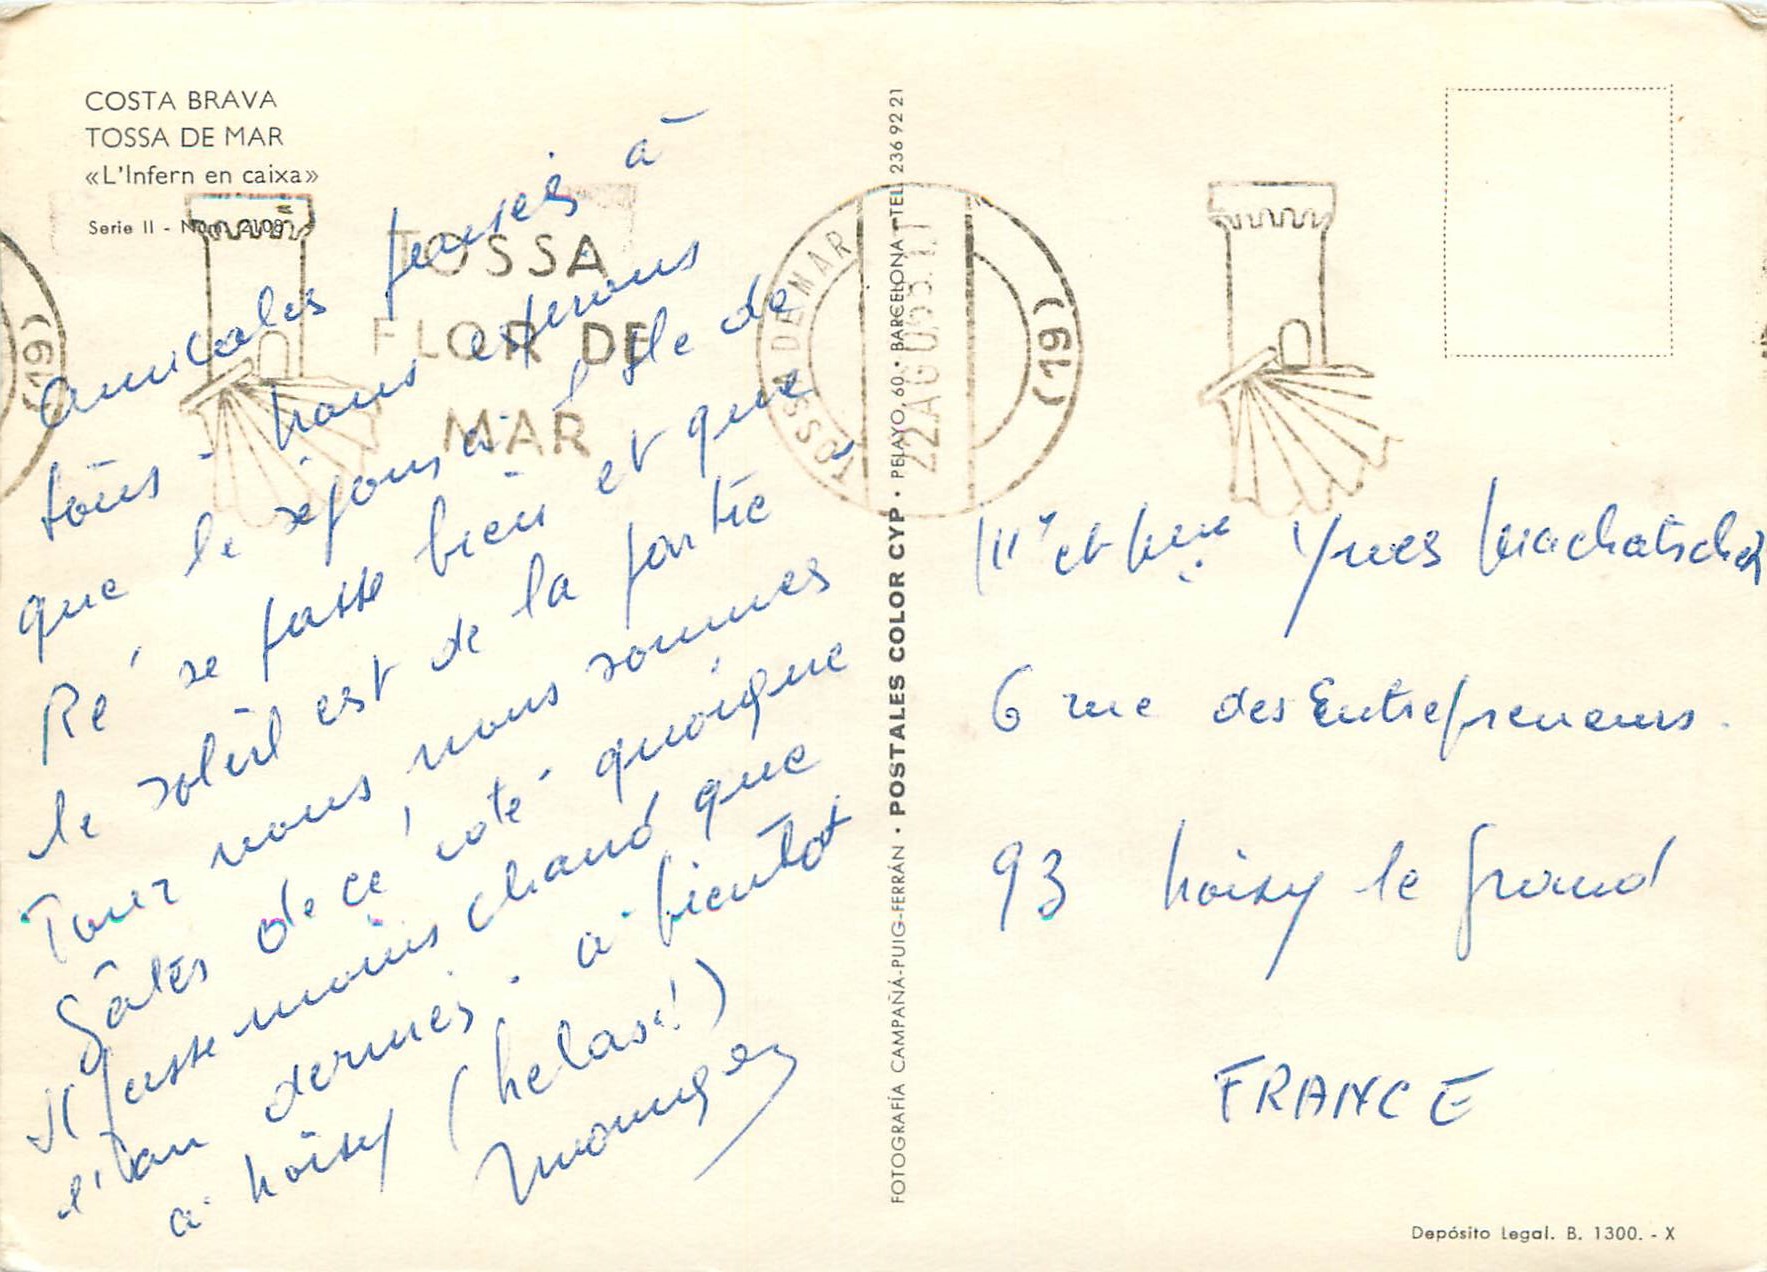 COSTA BRAVA
TOSSA DE MAR
«L'Infern en caixa»
Serie II - Núm. 2108
TOSSA
FLOR DE
MAR
TOSSA DE MAR
22 AGO
(19)
(19)
Amicales pensées à
tous - nous espérons
que le séjour à l'Ile de
Ré se passe bien et que
le soleil est de la partie
Pour nous nous sommes
gâtés de ce côté quoique
Il fasse moins chaud que
l'an dernier. à bientôt
à Noisy (helas!)
FOTOGRAFÍA CAMPAÑÁ-PUIG-FERRÁN • POSTALES COLOR CYP • PELAYO, 60 • BARCELONA - TEL. 236 92 21
Mr et Mme Yves
6 rue des Entrepreneurs.
93 Noisy le Grand
FRANCE
Depósito Legal. B. 1300. - X